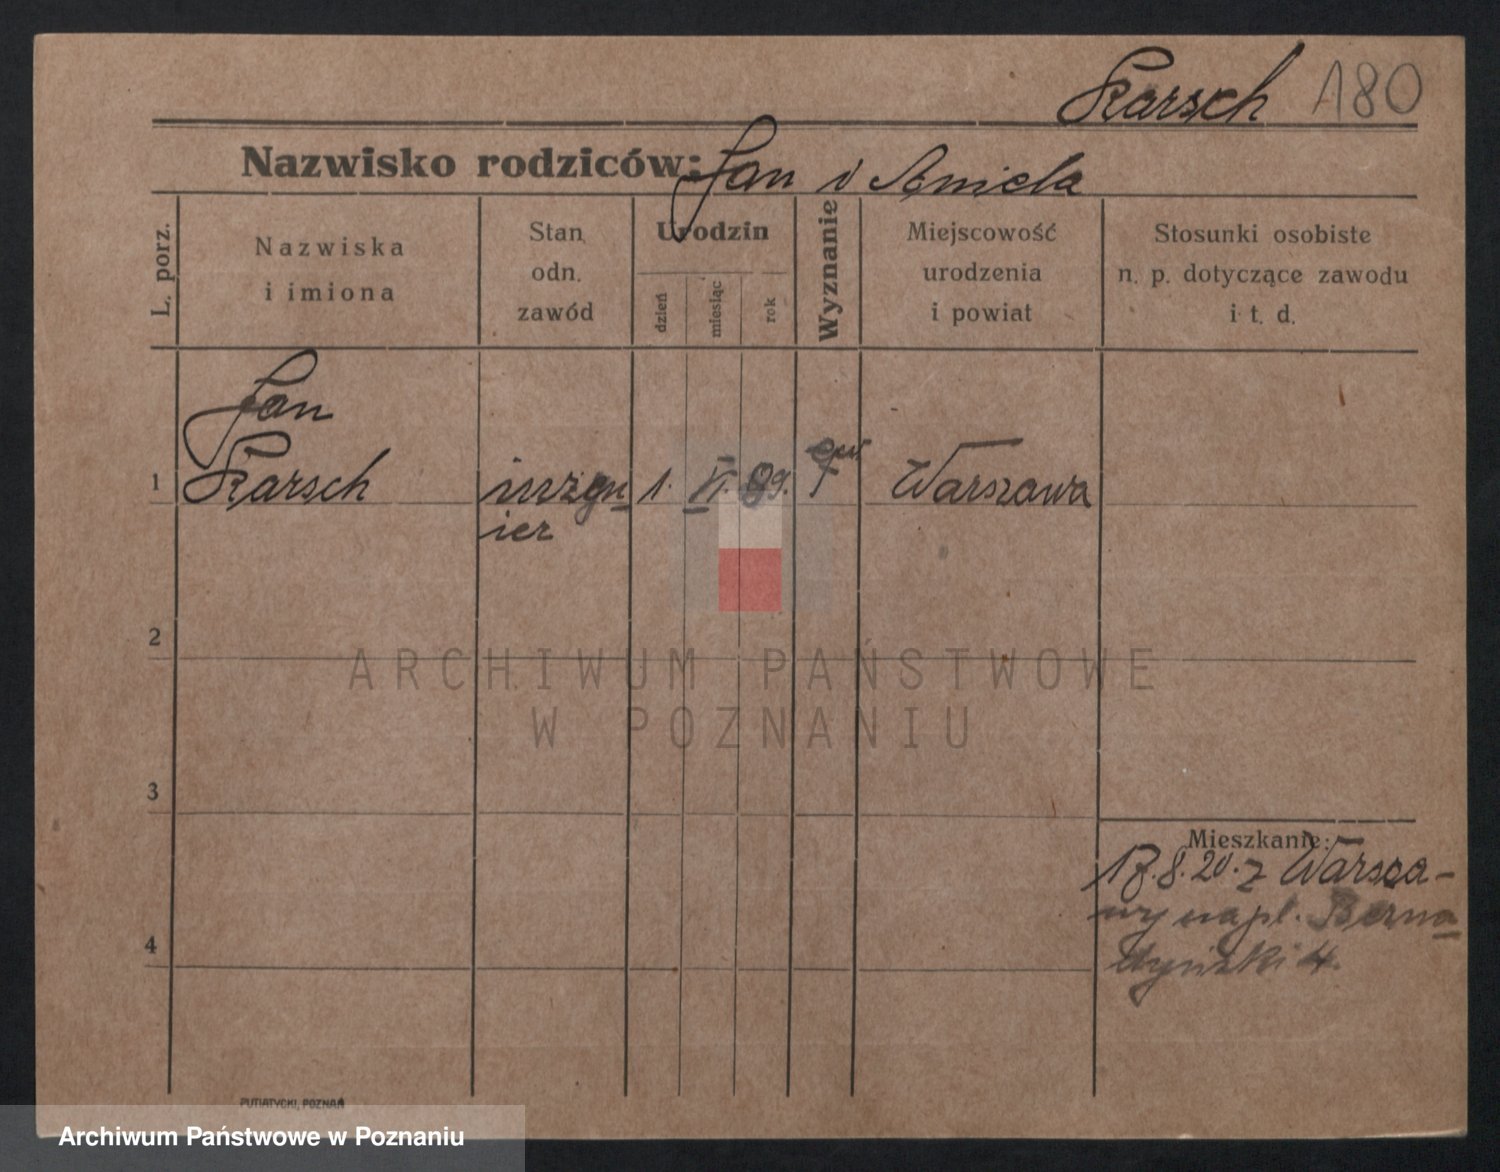 Karsch 180
Nazwisko rodziców: Jan i Aniela
L. porz.
Nazwiska
i imiona
Stan
odn.
zawód
Urodzin
dzień
miesiąc
rok
Wyznanie
Miejscowość
urodzenia
i powiat
Stosunki osobiste
n. p. dotyczące zawodu
i t. d.
Jan
1 Karsch
inżyn
ier
1. VI. 89.
ew
Warszawa
2
3
4
Mieszkanie:
17.8.20. z Warsza-
wy na pl. Berna
dyński 4.
PUTIATYCKI, POZNAŃ
ARCHIWUM PAŃSTWOWE
W POZNANIU
Archiwum Państwowe w Poznaniu